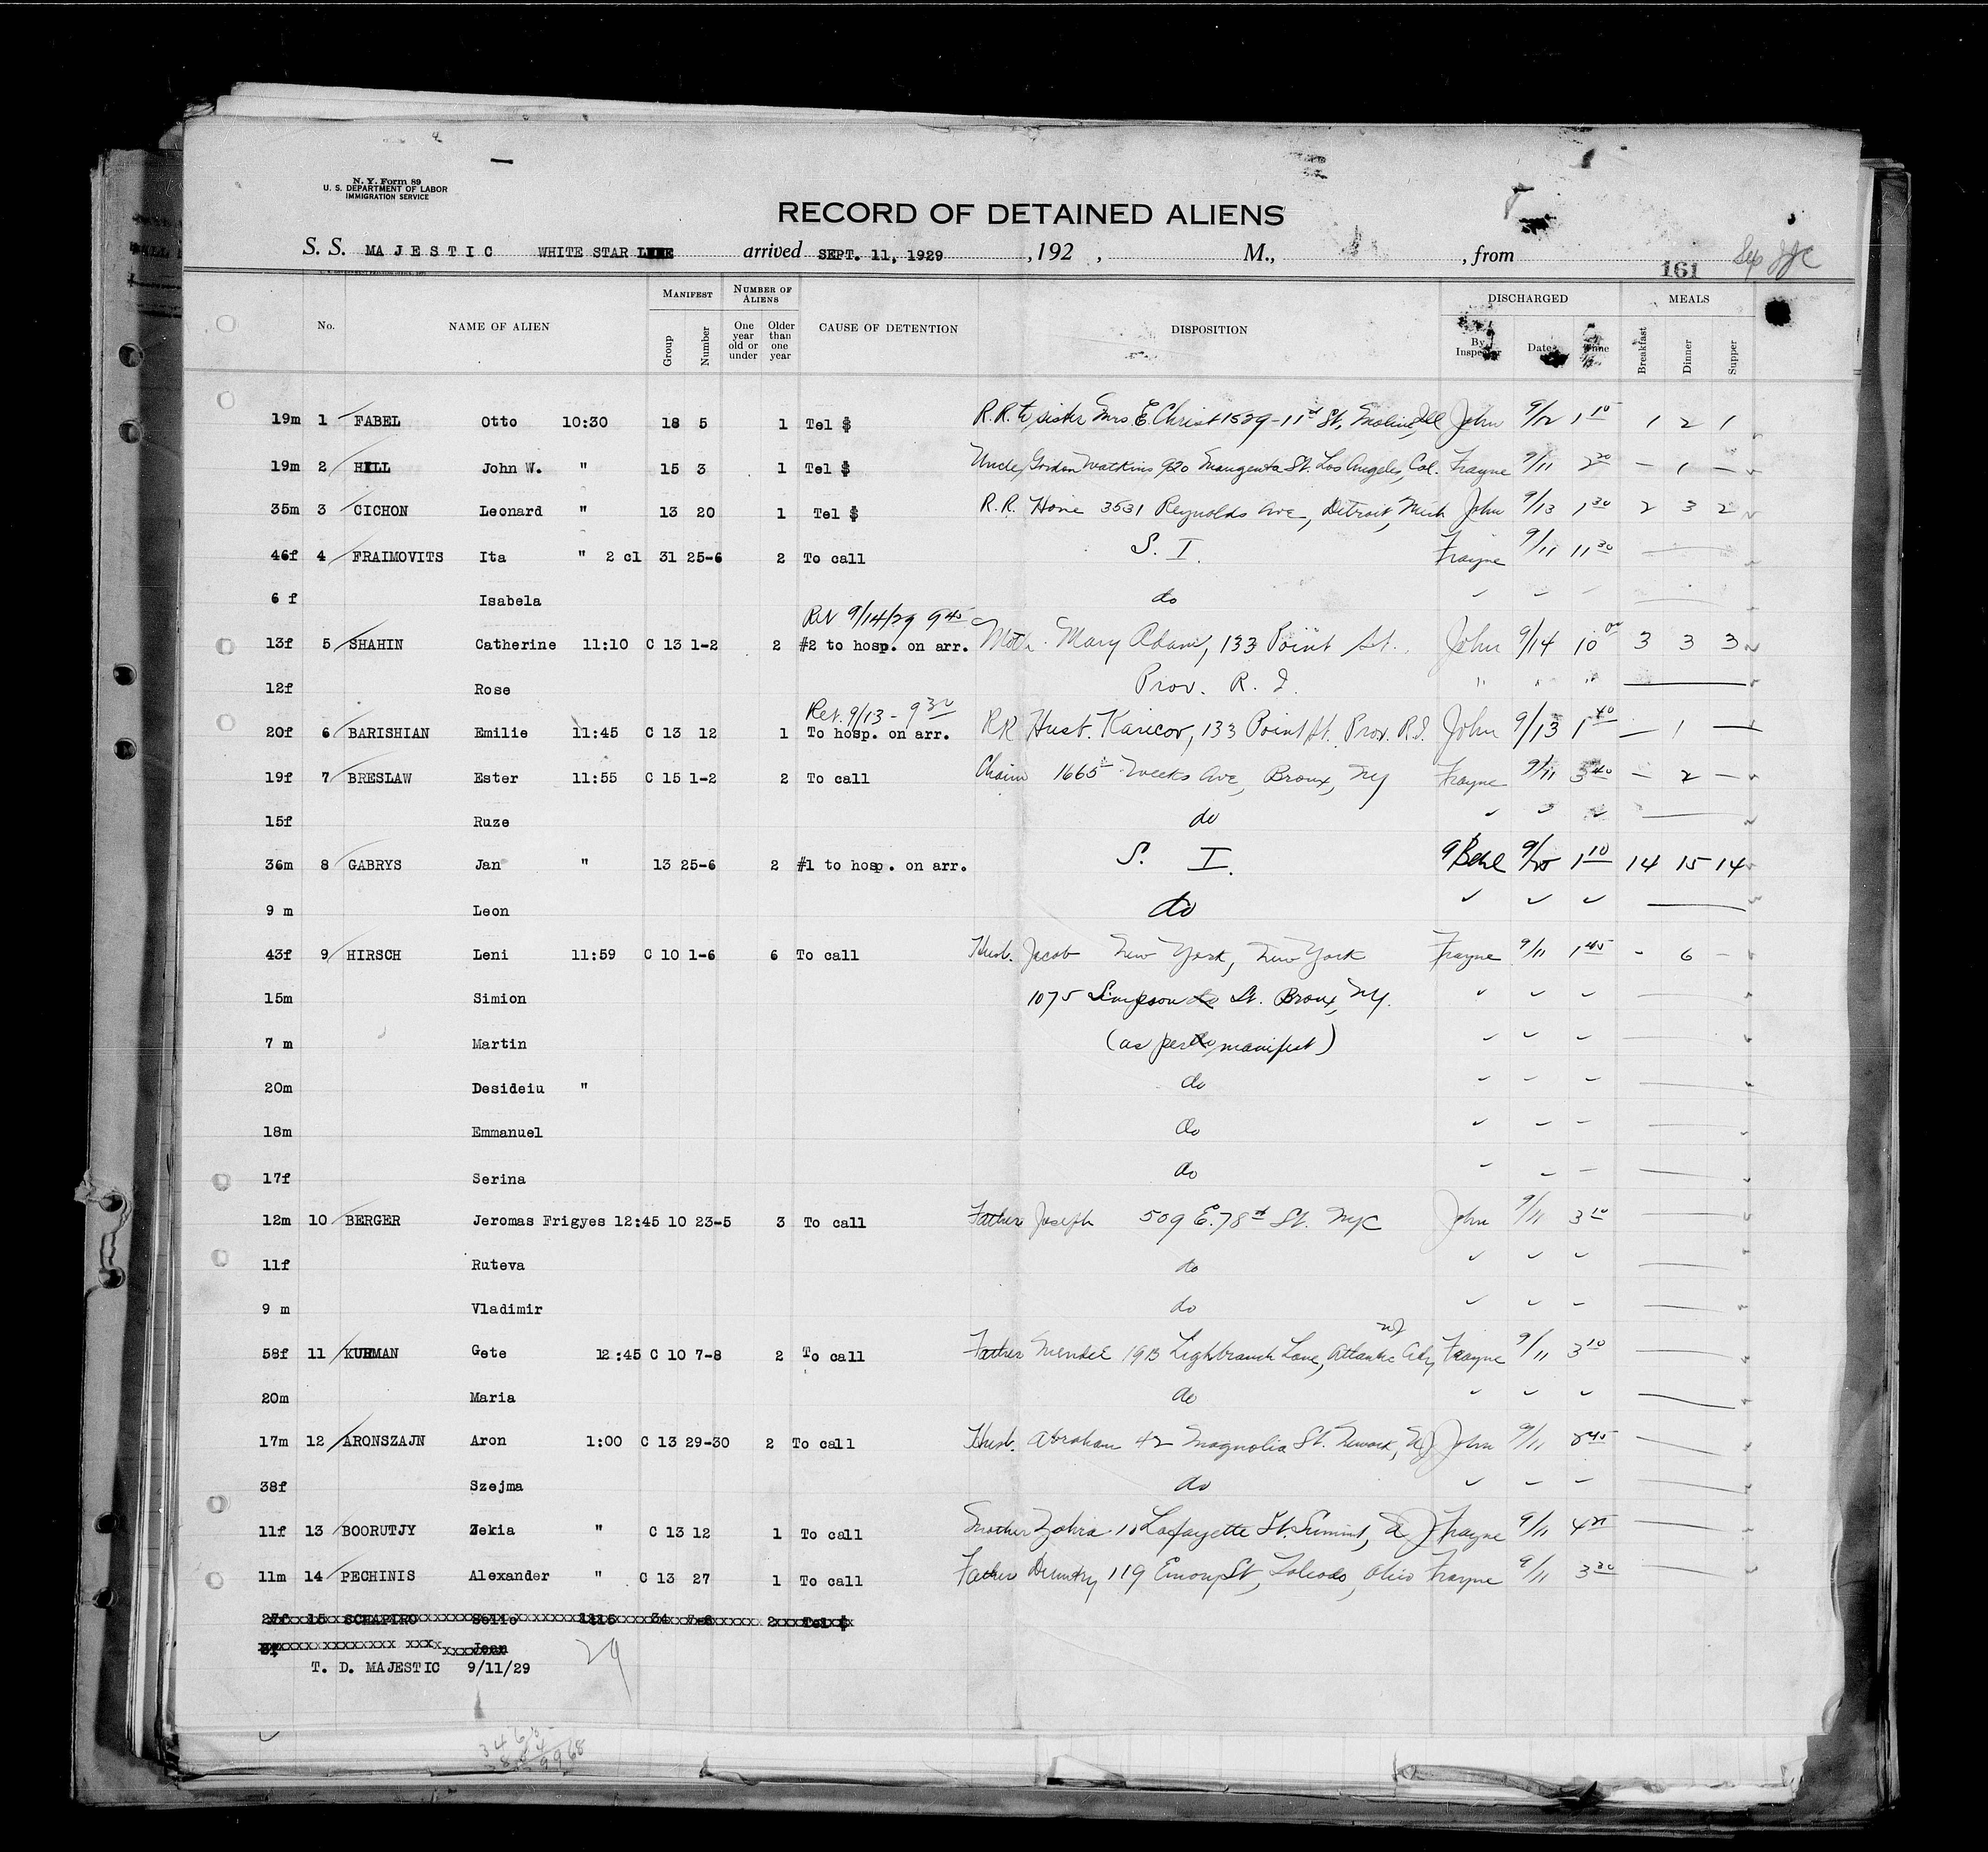 N. Y. Form 89
U. S. DEPARTMENT OF LABOR
IMMIGRATION SERVICE
RECORD OF DETAINED ALIENS
S. S. MAJESTIC WHITE STAR LINE arrived SEPT. 11, 1929 , 192 , M., , from
161
No. NAME OF ALIEN MANIFEST Group Number NUMBER OF ALIENS One year old or under Older than one year CAUSE OF DETENTION DISPOSITION DISCHARGED By Inspector Date Time MEALS Breakfast Dinner Supper
19m 1 FABEL Otto 10:30 18 5 1 Tel $ R.R. to sister Mrs. E. Christ 1529-11th St, Moline, Ill John 9/12 1 10 1 2 1
19m 2 HILL John W. " 15 3 1 Tel $ Uncle, Gordon Watkins 920 St. Los Angeles, Cal. Frayne 9/11 2 30 - 1 -
35m 3 CICHON Leonard " 13 20 1 Tel $ R.R. Home 3531 Reynolds Ave, Detroit, Mich John 9/13 1 30 2 3 2
46f 4 FRAIMOVITS Ita " 2 cl 31 25-6 2 To call S. I. Frayne 9/11 11 30
6 f Isabela do
Ret 9/14/29 9 45
13f 5 SHAHIN Catherine 11:10 C 13 1-2 2 #2 to hosp. on arr. Moth. Mary Adam, 133 Point St. John 9/14 10 00 3 3 3
12f Rose Prov. R. I. " " "
Ret. 9/13 - 9 30
20f 6 BARISHIAN Emilie 11:45 C 13 12 1 To hosp. on arr. RR Husb. 133 Point St. Prov. R.I. John 9/13 1 40 - 1 -
19f 7 BRESLAW Ester 11:55 C 15 1-2 2 To call Chaim 1665 Weeks Ave, Bronx, NY Frayne 9/11 3 40 - 2 -
15f Ruze do
36m 8 GABRYS Jan " 13 25-6 2 #1 to hosp. on arr. S. I. 9/25 1 10 14 15 14
9 m Leon do
43f 9 HIRSCH Leni 11:59 C 10 1-6 6 To call Husb. Jacob New York, New York Frayne 9/11 1 45 - 6 -
15m Simion 1075 Simpson St. Bronx, NY.
7 m Martin (as per manifest)
20m Desideiu " do
18m Emmanuel do
17f Serina do
12m 10 BERGER Jeromas Frigyes 12:45 10 23-5 3 To call Father Joseph 509 E. 78th St. NYC John 9/11 3 10
11f Ruteva do
9 m Vladimir do
NJ
58f 11 KURMAN Gete 12:45 C 10 7-8 2 To call Father Mendel 1913 Lane, Atlantic City, Frayne 9/11 3 10
20m Maria do
17m 12 ARONSZAJN Aron 1:00 C 13 29-30 2 To call Husb. Abraham 42 Magnolia St. Newark, NJ John 9/11 2 45
38f Szejma do
11f 13 BOORUTJY Zekia " C 13 12 1 To call Mother Zahra 10 Lafayette St. Summit, NJ Frayne 9/11 4 25
11m 14 PECHINIS Alexander " C 13 27 1 To call Father 119 Emory St, Toledo, Ohio Frayne 9/11 3 30
27f 15 SCHAPIRO Sello 12:15 34 7-8 2 Tel $
Jean
T. D. MAJESTIC 9/11/29
29